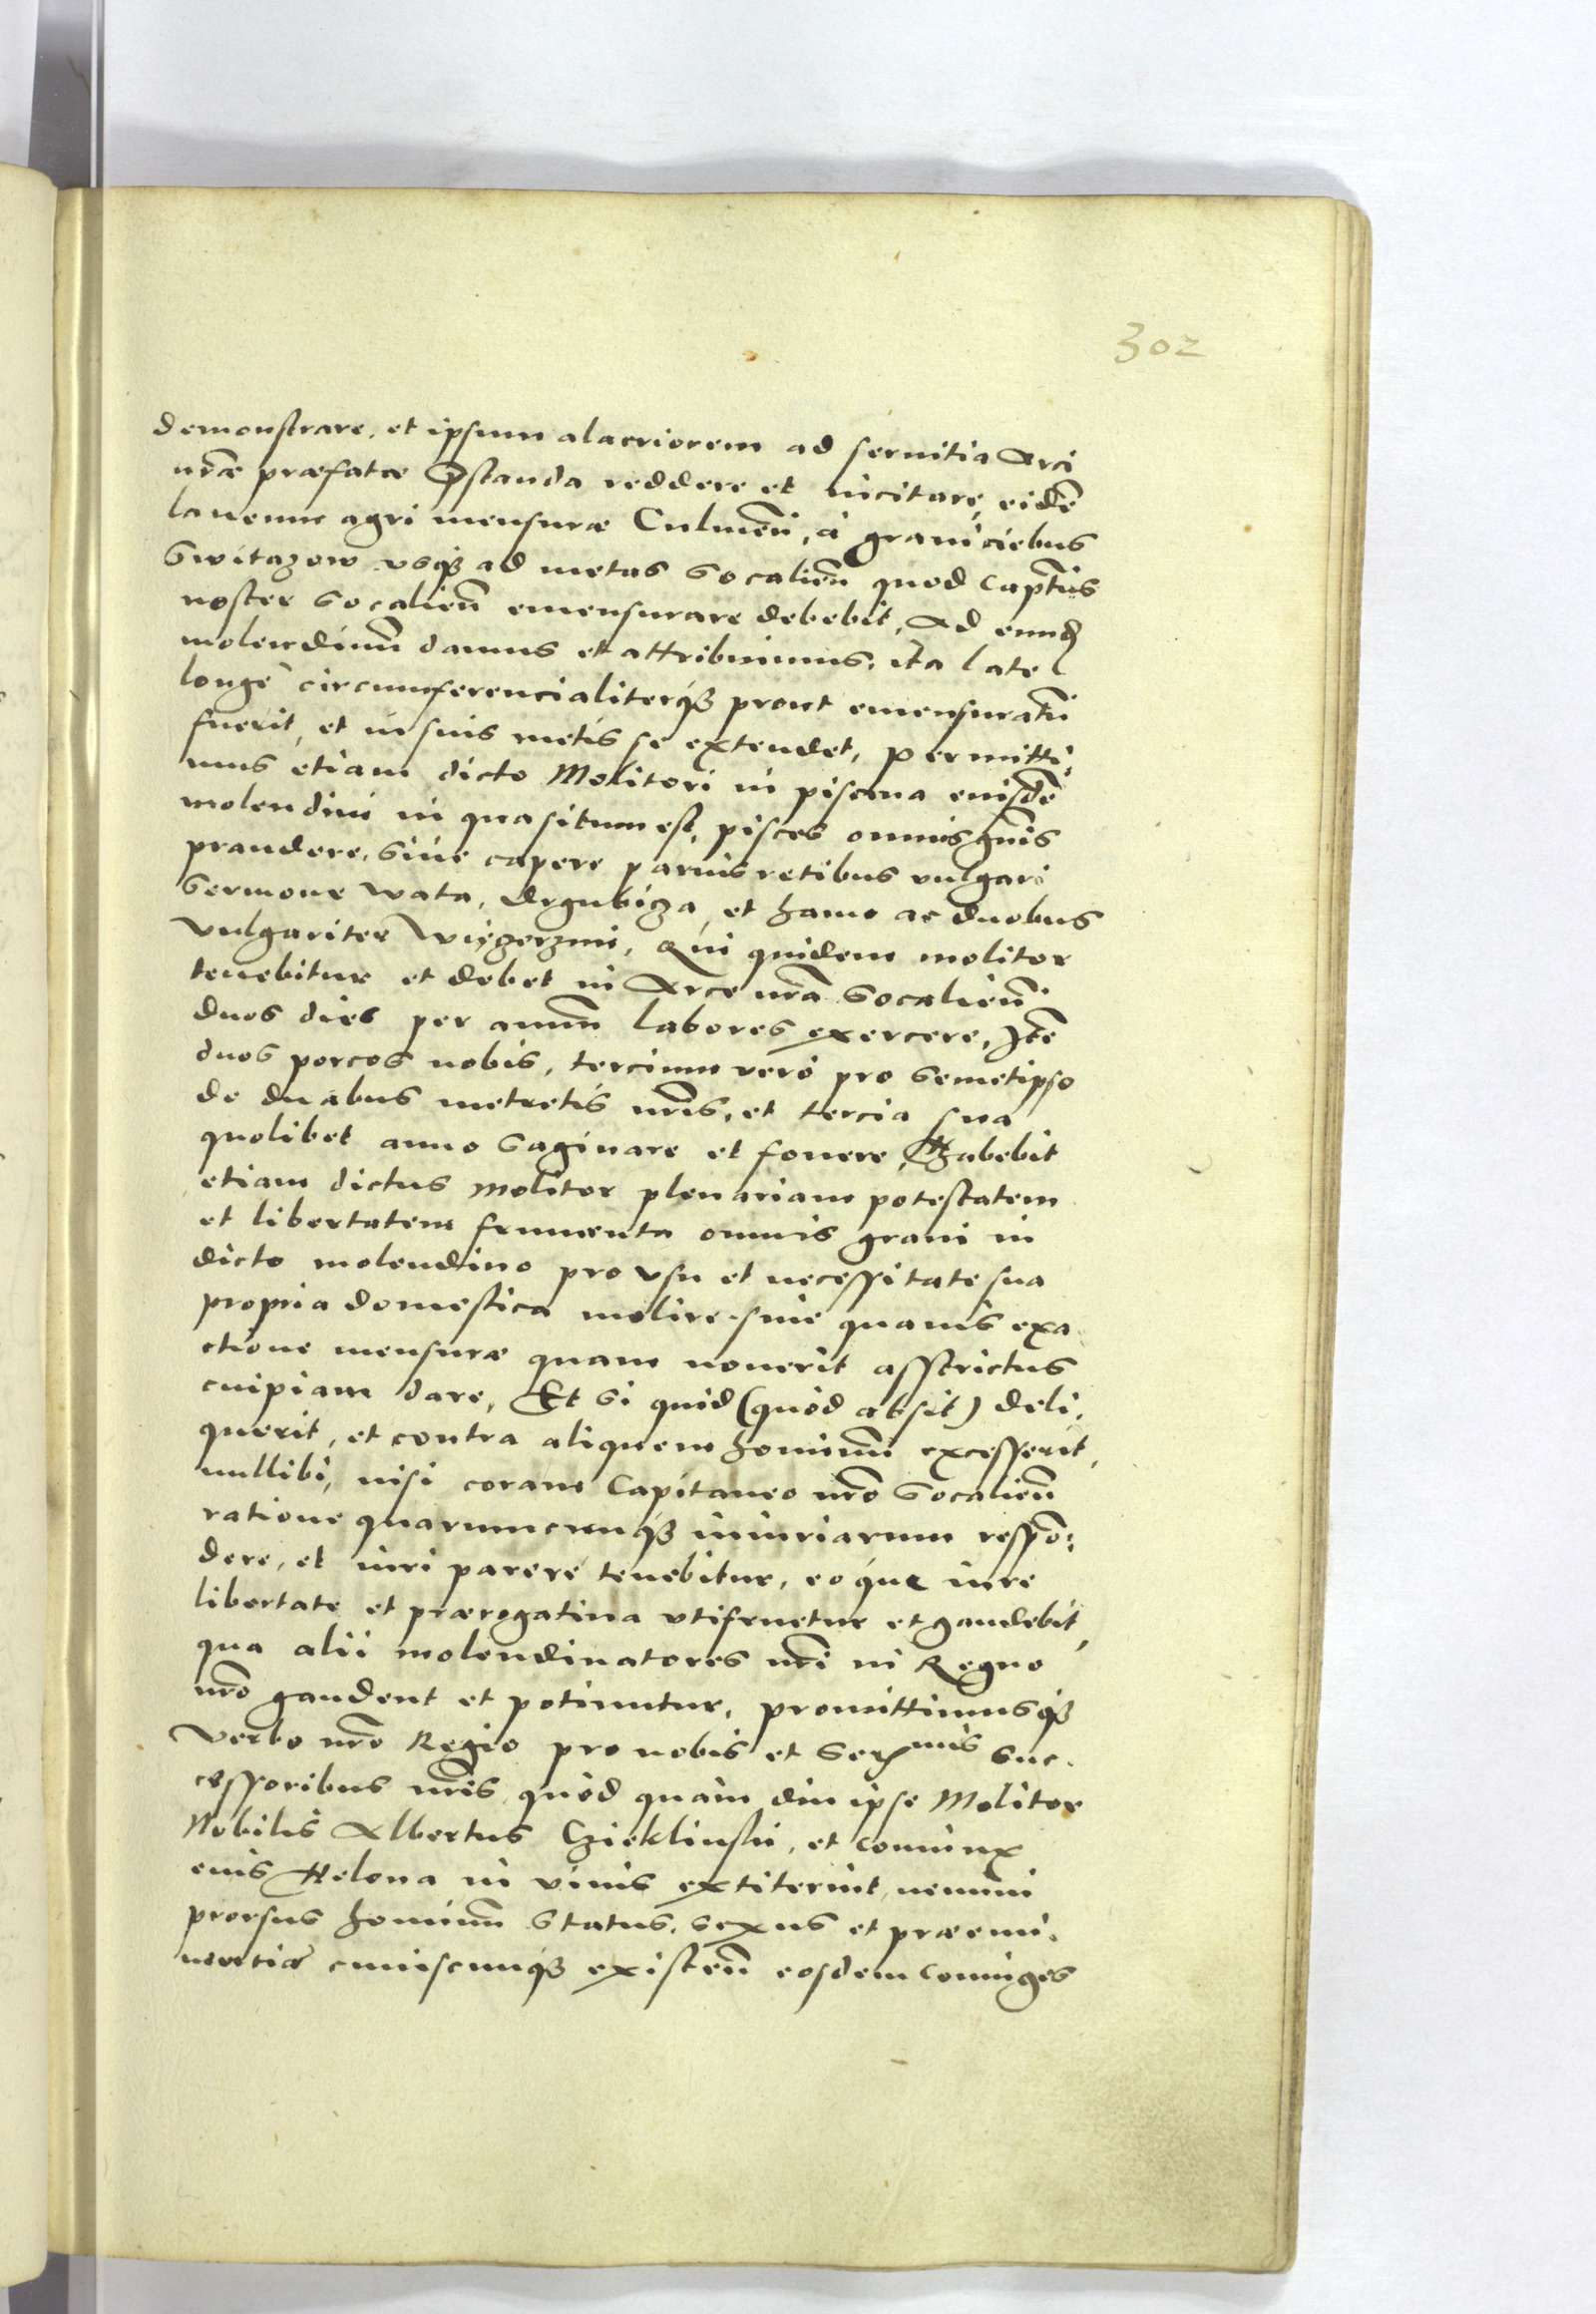 302
demonstrare, et ipsum alacriorem ad seruitia Arci
nrae praefatae pstanda reddere et incitare, eidē
laneum agri mensurae Culmeñ, à graniciebus
Switazow usq; ad metas Socalieñ quod Captñs
noster Socalieñ emensurare debebit, Ad eund
molendinū damus et attribuimus, ita late
longè circumferencialiterq; prout emensuratū
fuerit, et in suis metis se extendet, Permitti,
mus etiam dicto Molitori in piscina eiusdē
molendini in qua situm est, pisces omnis gñis
prandere, siue capere paruis retibus vulgari
sermone wata, drgubicza et hamo ac duobus
vulgariter Więczerzmi, Qui quidem molitor
tenebitur et debet in Arce nra Socalieñ
duos dies per annū labores exercere, Itē
duos porcos nobis, tercium verò pro semetipso
de duabus metretis nris, et tercia sua
quolibet anno saginare et fouere, Habebit
etiam dictus molitor plenariam potestatem
et libertatem frumenta omnis grani in
dicto molendino pro usu et necessitate sua
propria domestica molire siue quauis exa
ctione mensurae quam nouerit asstrictus
cuipiam dare, Et si quid (quod absit) deli,
querit, et contra aliquem hominū excesserit,
nullibi, nisi coram Capitaneo nro Socalieñ
ratione quarumcunq; iniuriarum respō:
dere, et iuri parere tenebitur, eoque iure
libertate et praerogatiua utifruetur et gaudebit,
qua alii molendinatores nri in Regno
nro gaudent et potiuntur, promittimusq;
Verbo nro Regio pro nobis et Serᵐⁱˢ suc.
cessoribus nris, quòd quàm diu ipse Molitor
Nobilis Albertus Czieklinski, et Coniunx
eius Helena in viuis extiterint, nemini
prorsus hominū status, sexus et praeemi.
nentiae cuiuscunq; existeñ eosdem Coniuges